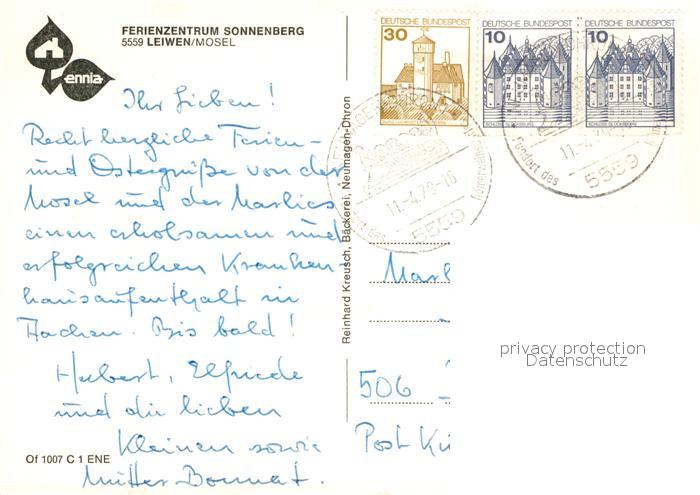 FERIENZENTRUM SONNENBERG
5559 LEIWEN/MOSEL
ennia
Ihr Lieben!
Recht herzliche Ferien-
und Ostergrüße von der
Mosel und der Marlies
einen erholsamen und
erfolgreichen Kranken-
hausaufenthalt in
Aachen. Bis bald!
Hubert, Elfriede
und die lieben
Kleinen sowie
Mutter
Of 1007 C 1 ENE
Reinhard Kreusch, Bäckerei, Neumagen-Dhron
DEUTSCHE BUNDESPOST
30
DEUTSCHE BUNDESPOST
10
SCHLOSS GLÜCKSBURG
DEUTSCHE BUNDESPOST
10
SCHLOSS GLÜCKSBURG
11.-4.79-16
5559
11.-4.79
5559
Marl
506
Post Kü
privacy protection
Datenschutz